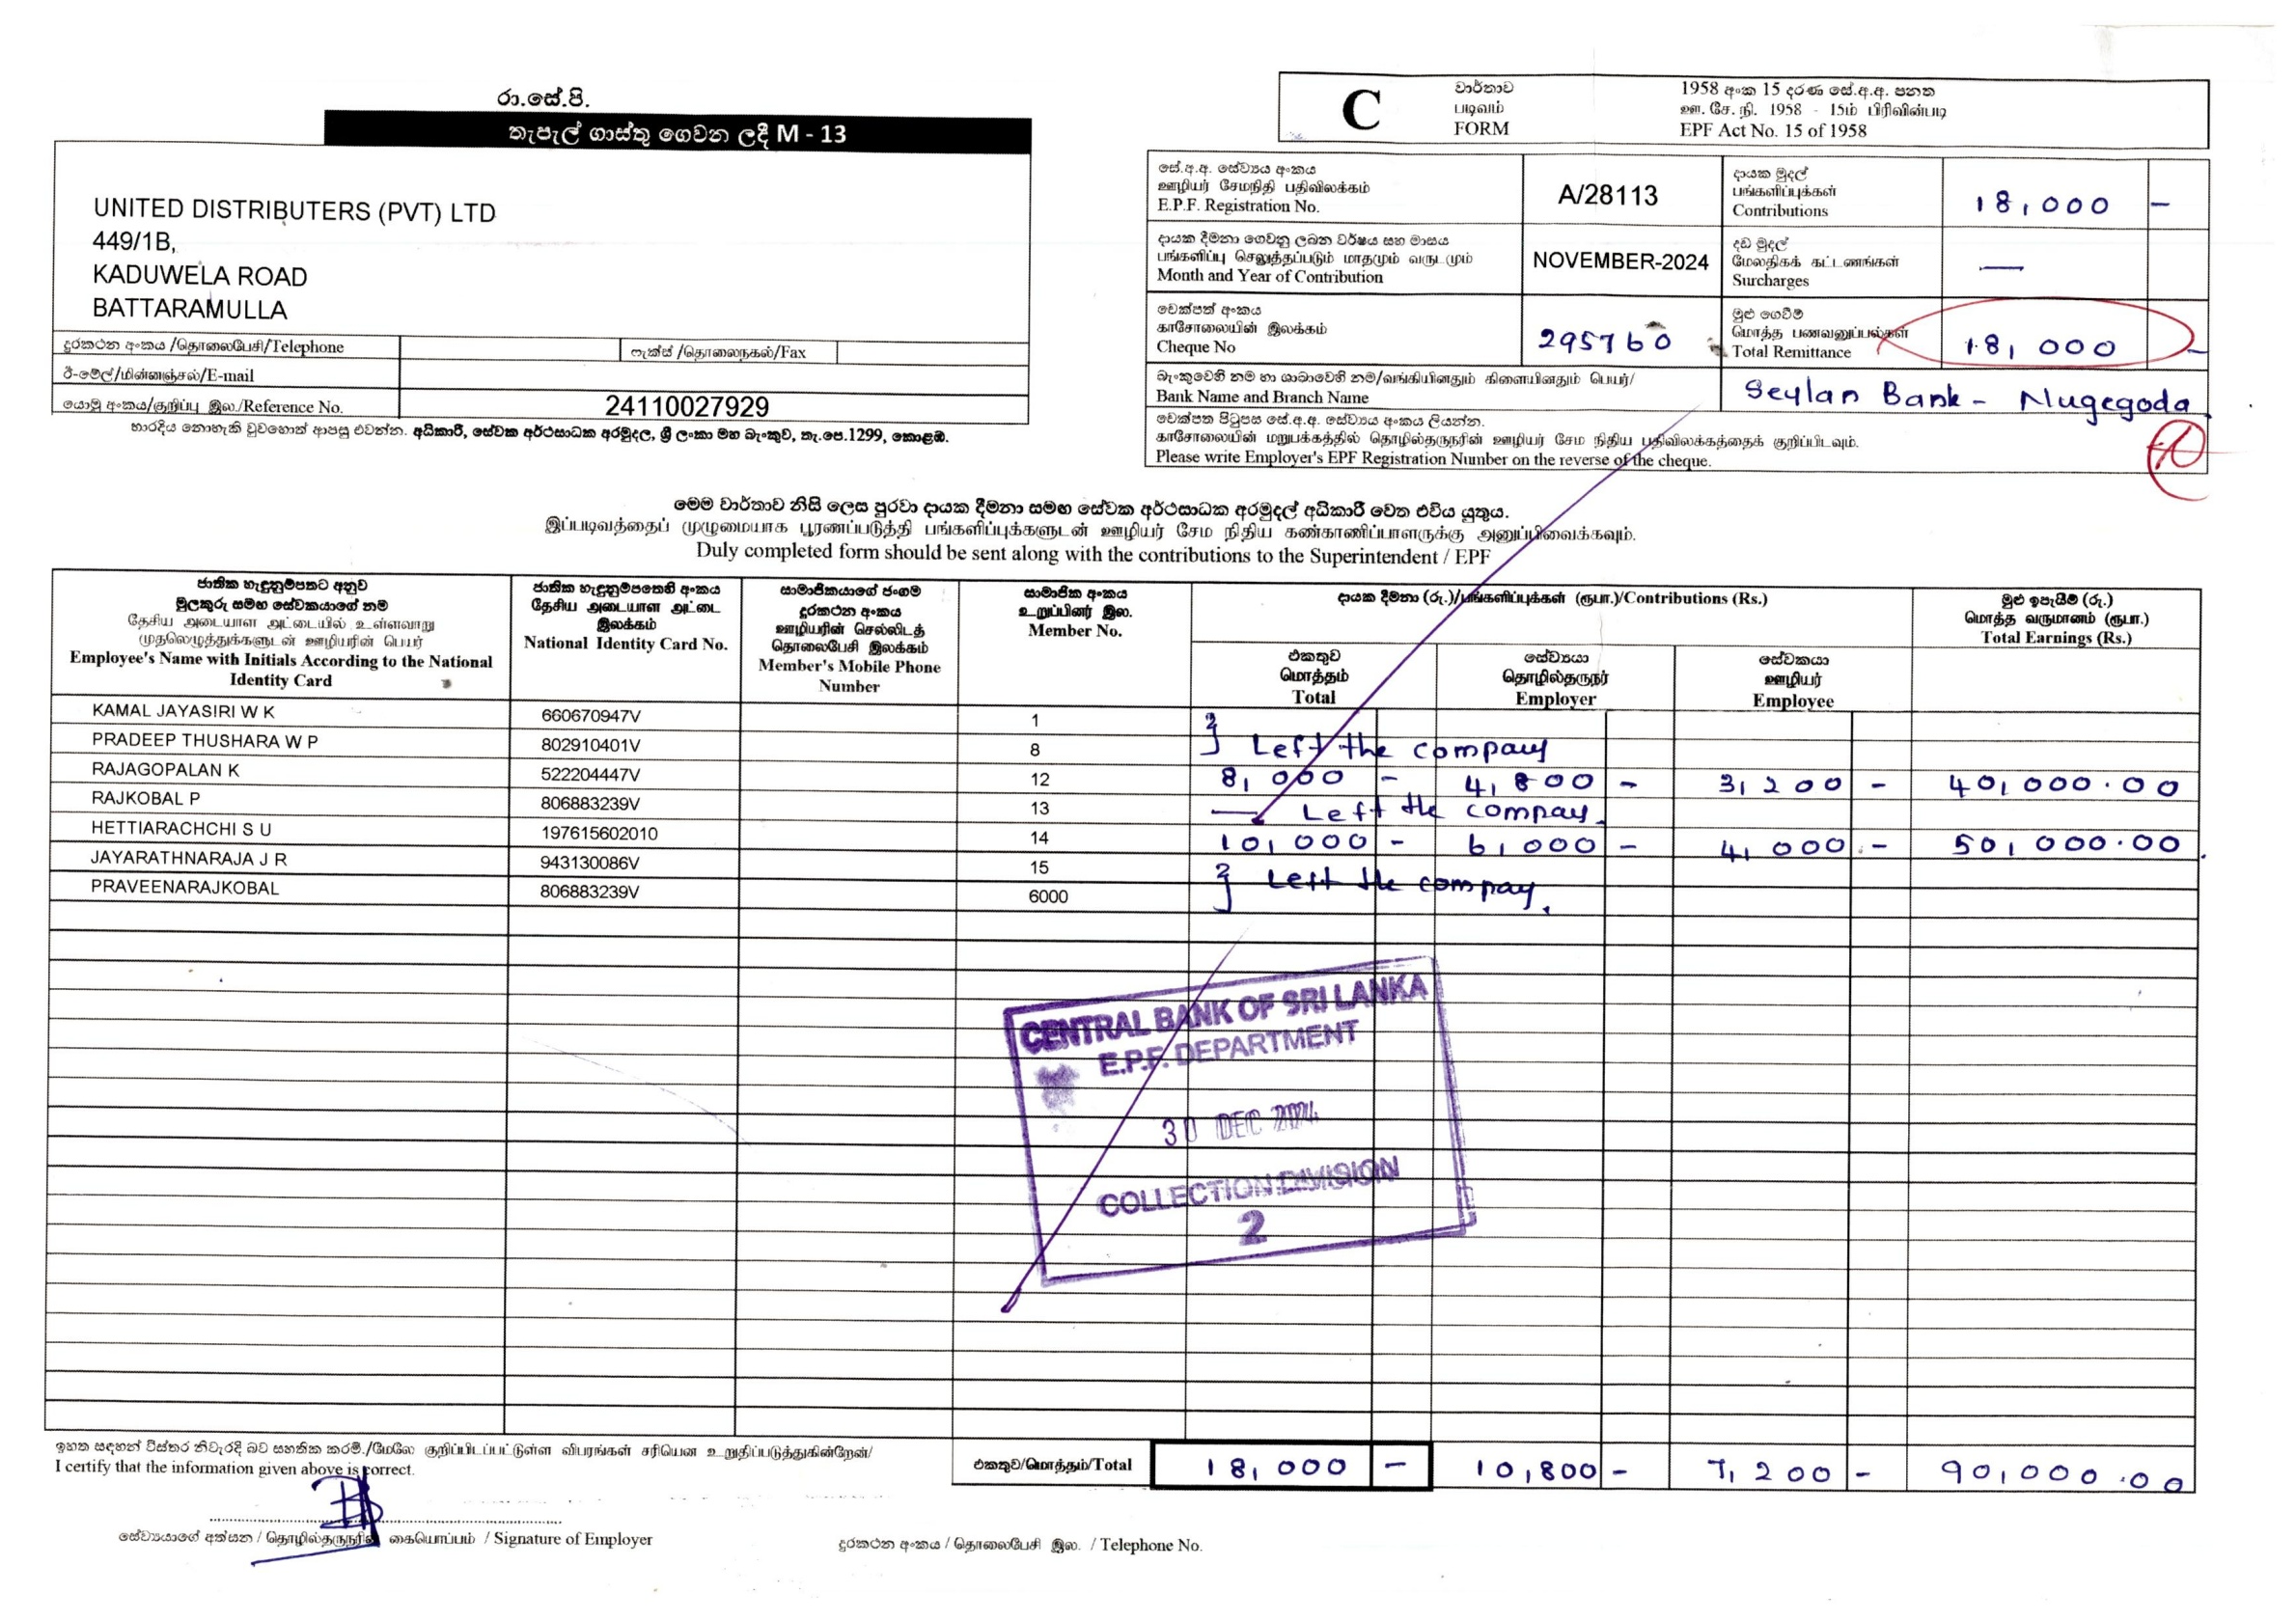 රා.සේ.පි.
තැපැල් ගාස්තු ගෙවන ලදී M - 13
UNITED DISTRIBUTERS (PVT) LTD
449/1B,
KADUWELA ROAD
BATTARAMULLA
දුරකථන අංකය /தொலைபேசி/Telephone
ෆැක්ස් /தொலைநகல்/Fax
ඊ-මේල්/மின்னஞ்சல்/E-mail
යොමු අංකය/குறிப்பு இல./Reference No. 24110027929
භාරදිය නොහැකි වුවහොත් ආපසු එවන්න. අධිකාරී, සේවක අර්ථසාධක අරමුදල, ශ්‍රී ලංකා මහ බැංකුව, තැ.පෙ.1299, කොළඹ.
C
වාර්තාව
படிவம்
FORM
1958 අංක 15 දරණ සේ.අ.අ. පනත
ஊ. சே. நி. 1958 - 15ம் பிரிவின்படி
EPF Act No. 15 of 1958
සේ.අ.අ. සේව්‍යය අංකය
ஊழியர் சேமநிதி பதிவிலக்கம்
E.P.F. Registration No.
A/28113
දායක මුදල්
பங்களிப்புக்கள்
Contributions
18,000 –
දායක දීමනා ගෙවනු ලබන වර්ෂය සහ මාසය
பங்களிப்பு செலுத்தப்படும் மாதமும் வருடமும்
Month and Year of Contribution
NOVEMBER-2024
දඩ මුදල්
மேலதிகக் கட்டணங்கள்
Surcharges
—
චෙක්පත් අංකය
காசோலையின் இலக்கம்
Cheque No
295760
මුළු ගෙවීම්
மொத்த பணவனுப்பல்கள்
Total Remittance
18,000 –
බැංකුවෙහි නම හා ශාඛාවෙහි නම/வங்கியினதும் கிளையினதும் பெயர்/
Bank Name and Branch Name
Seylan Bank - Nugegoda.
චෙක්පත පිටුපස සේ.අ.අ. සේව්‍යය අංකය ලියන්න.
காசோலையின் மறுபக்கத்தில் தொழில்தருநரின் ஊழியர் சேம நிதிய பதிவிலக்கத்தைக் குறிப்பிடவும்.
Please write Employer's EPF Registration Number on the reverse of the cheque.
මෙම වාර්තාව නිසි ලෙස පුරවා දායක දීමනා සමඟ සේවක අර්ථසාධක අරමුදල් අධිකාරී වෙත එවිය යුතුය.
இப்படிவத்தைப் முழுமையாக பூரணப்படுத்தி பங்களிப்புக்களுடன் ஊழியர் சேம நிதிய கண்காணிப்பாளருக்கு அனுப்பிவைக்கவும்.
Duly completed form should be sent along with the contributions to the Superintendent / EPF
ජාතික හැඳුනුම්පතට අනුව
මුලකුරු සමඟ සේවකයාගේ නම
தேசிய அடையாள அட்டையில் உள்ளவாறு
முதலெழுத்துக்களுடன் ஊழியரின் பெயர்
Employee's Name with Initials According to the National
Identity Card
ජාතික හැඳුනුම්පතෙහි අංකය
தேசிய அடையாள அட்டை
இலக்கம்
National Identity Card No.
සාමාජිකයාගේ ජංගම
දුරකථන අංකය
ஊழியரின் செல்லிடத்
தொலைபேசி இலக்கம்
Member's Mobile Phone
Number
සාමාජික අංකය
உறுப்பினர் இல.
Member No.
දායක දීමනා (රු.)/பங்களிப்புக்கள் (ரூபா.)/Contributions (Rs.)
එකතුව
மொத்தம்
Total
සේව්‍යයා
தொழில்தருநர்
Employer
සේවකයා
ஊழியர்
Employee
මුළු ඉපැයීම් (රු.)
மொத்த வருமானம் (ரூபா.)
Total Earnings (Rs.)
KAMAL JAYASIRI W K 660670947V 1
PRADEEP THUSHARA W P 802910401V 8 } Left the company
RAJAGOPALAN K 522204447V 12 8,000 – 4,800 – 3,200 – 40,000.00
RAJKOBAL P 806883239V 13 — Left the compay.
HETTIARACHCHI S U 197615602010 14 10,000 – 6,000 – 4,000 – 50,000.00
JAYARATHNARAJA J R 943130086V 15 } Left the compay.
PRAVEENARAJKOBAL 806883239V 6000
CENTRAL BANK OF SRI LANKA
E.P.F. DEPARTMENT
30 DEC 2024
COLLECTION DIVISION
2
ඉහත සඳහන් විස්තර නිවැරදි බව සහතික කරමි./மேலே குறிப்பிடப்பட்டுள்ள விபரங்கள் சரியென உறுதிப்படுத்துகின்றேன்/
I certify that the information given above is correct.
එකතුව/மொத்தம்/Total 18,000 – 10,800 – 7,200 – 90,000.00
සේව්‍යයාගේ අත්සන / தொழில்தருநரின் கையொப்பம் / Signature of Employer
දුරකථන අංකය / தொலைபேசி இல. / Telephone No.